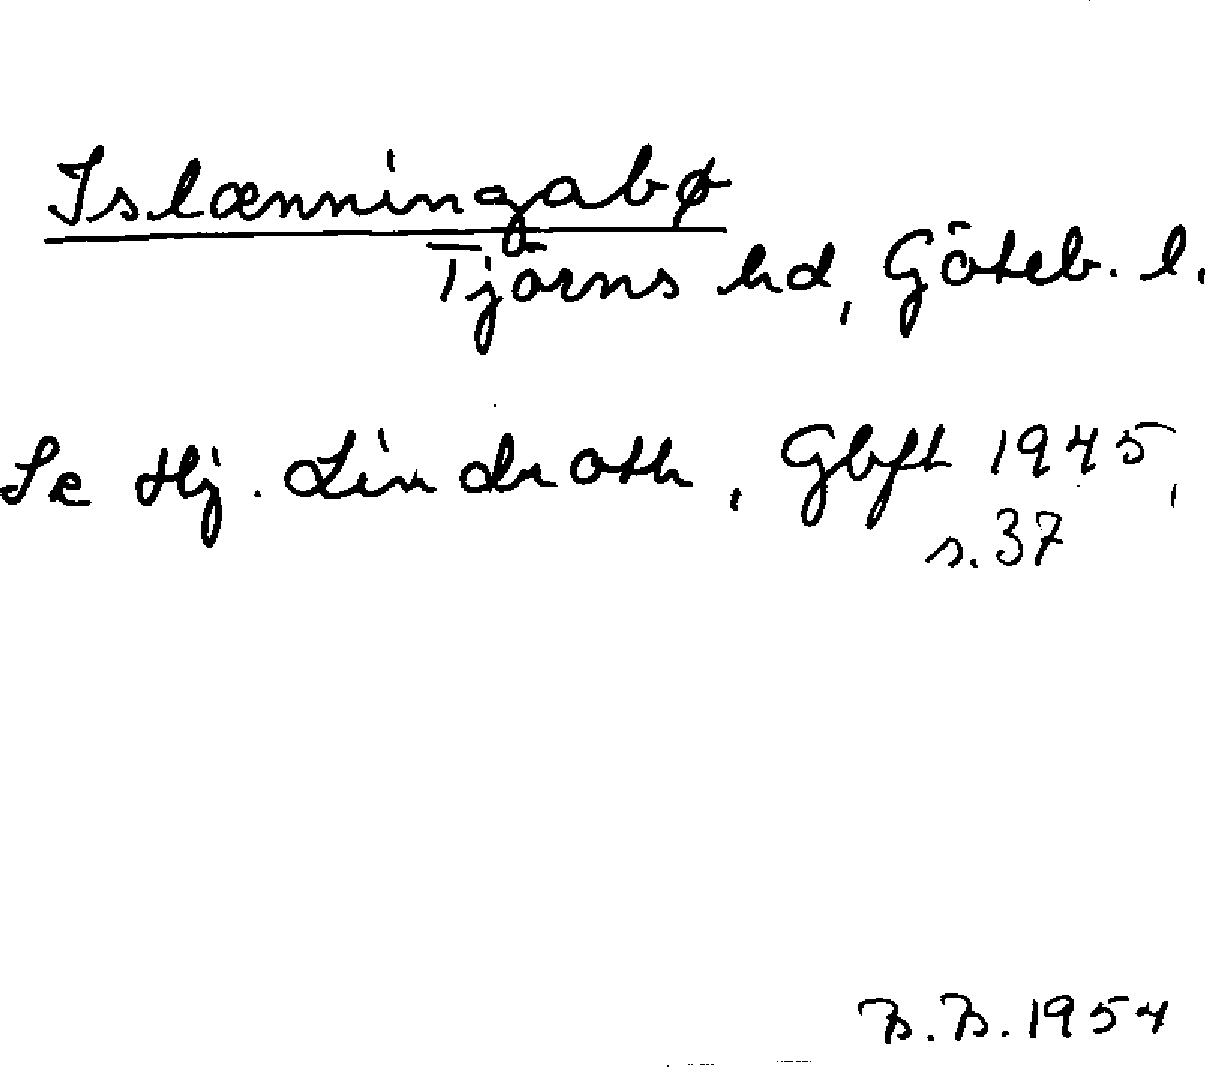 Islænningabø
Tjörns hd, Göteb. l.
Se Hj. Lindroth, Gbft 1945,
s. 37
B. B. 1954